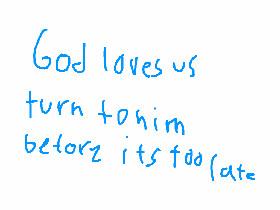 God loves us
turn to him
before its too late